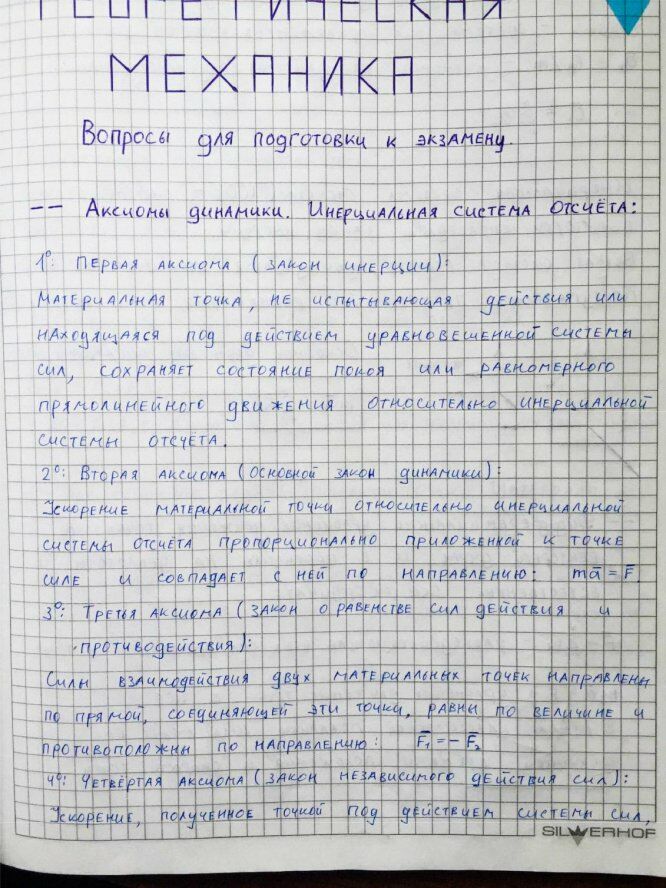 ТЕОРЕТИЧЕСКАЯ
МЕХАНИКА
Вопросы для подготовки к экзамену.
-- Аксиомы динамики. Инерциальная система отсчёта:
1°: Первая аксиома (закон инерции):
Материальная точка, не испытывающая действия или
находящаяся под действием уравновешенной системы
сил, сохраняет состояние покоя или равномерного
прямолинейного движения относительно инерциальной
системы отсчёта.
2°: Вторая аксиома (основной закон динамики):
Ускорение материальной точки относительно инерциальной
системы отсчёта пропорционально приложенной к точке
силе и совпадает с ней по направлению: mā = F̄
3°: Третья аксиома (закон о равенстве сил действия и
противодействия):
Силы взаимодействия двух материальных точек направлены
по прямой, соединяющей эти точки, равны по величине и
противоположны по направлению: F̄₁ = - F̄₂
4°: Четвёртая аксиома (закон независимого действия сил):
Ускорение, полученное точкой под действием системы сил,
SILWERHOF